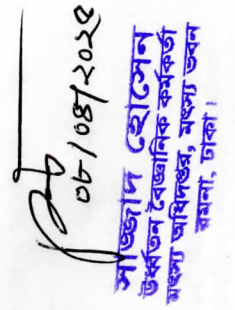 ০৮/০৪/২০২৫
সাজ্জাদ হোসেন
উর্ধ্বতন বৈজ্ঞানিক কর্মকর্তা
মৎস্য অধিদপ্তর, মৎস্য ভবন
রমনা, ঢাকা।